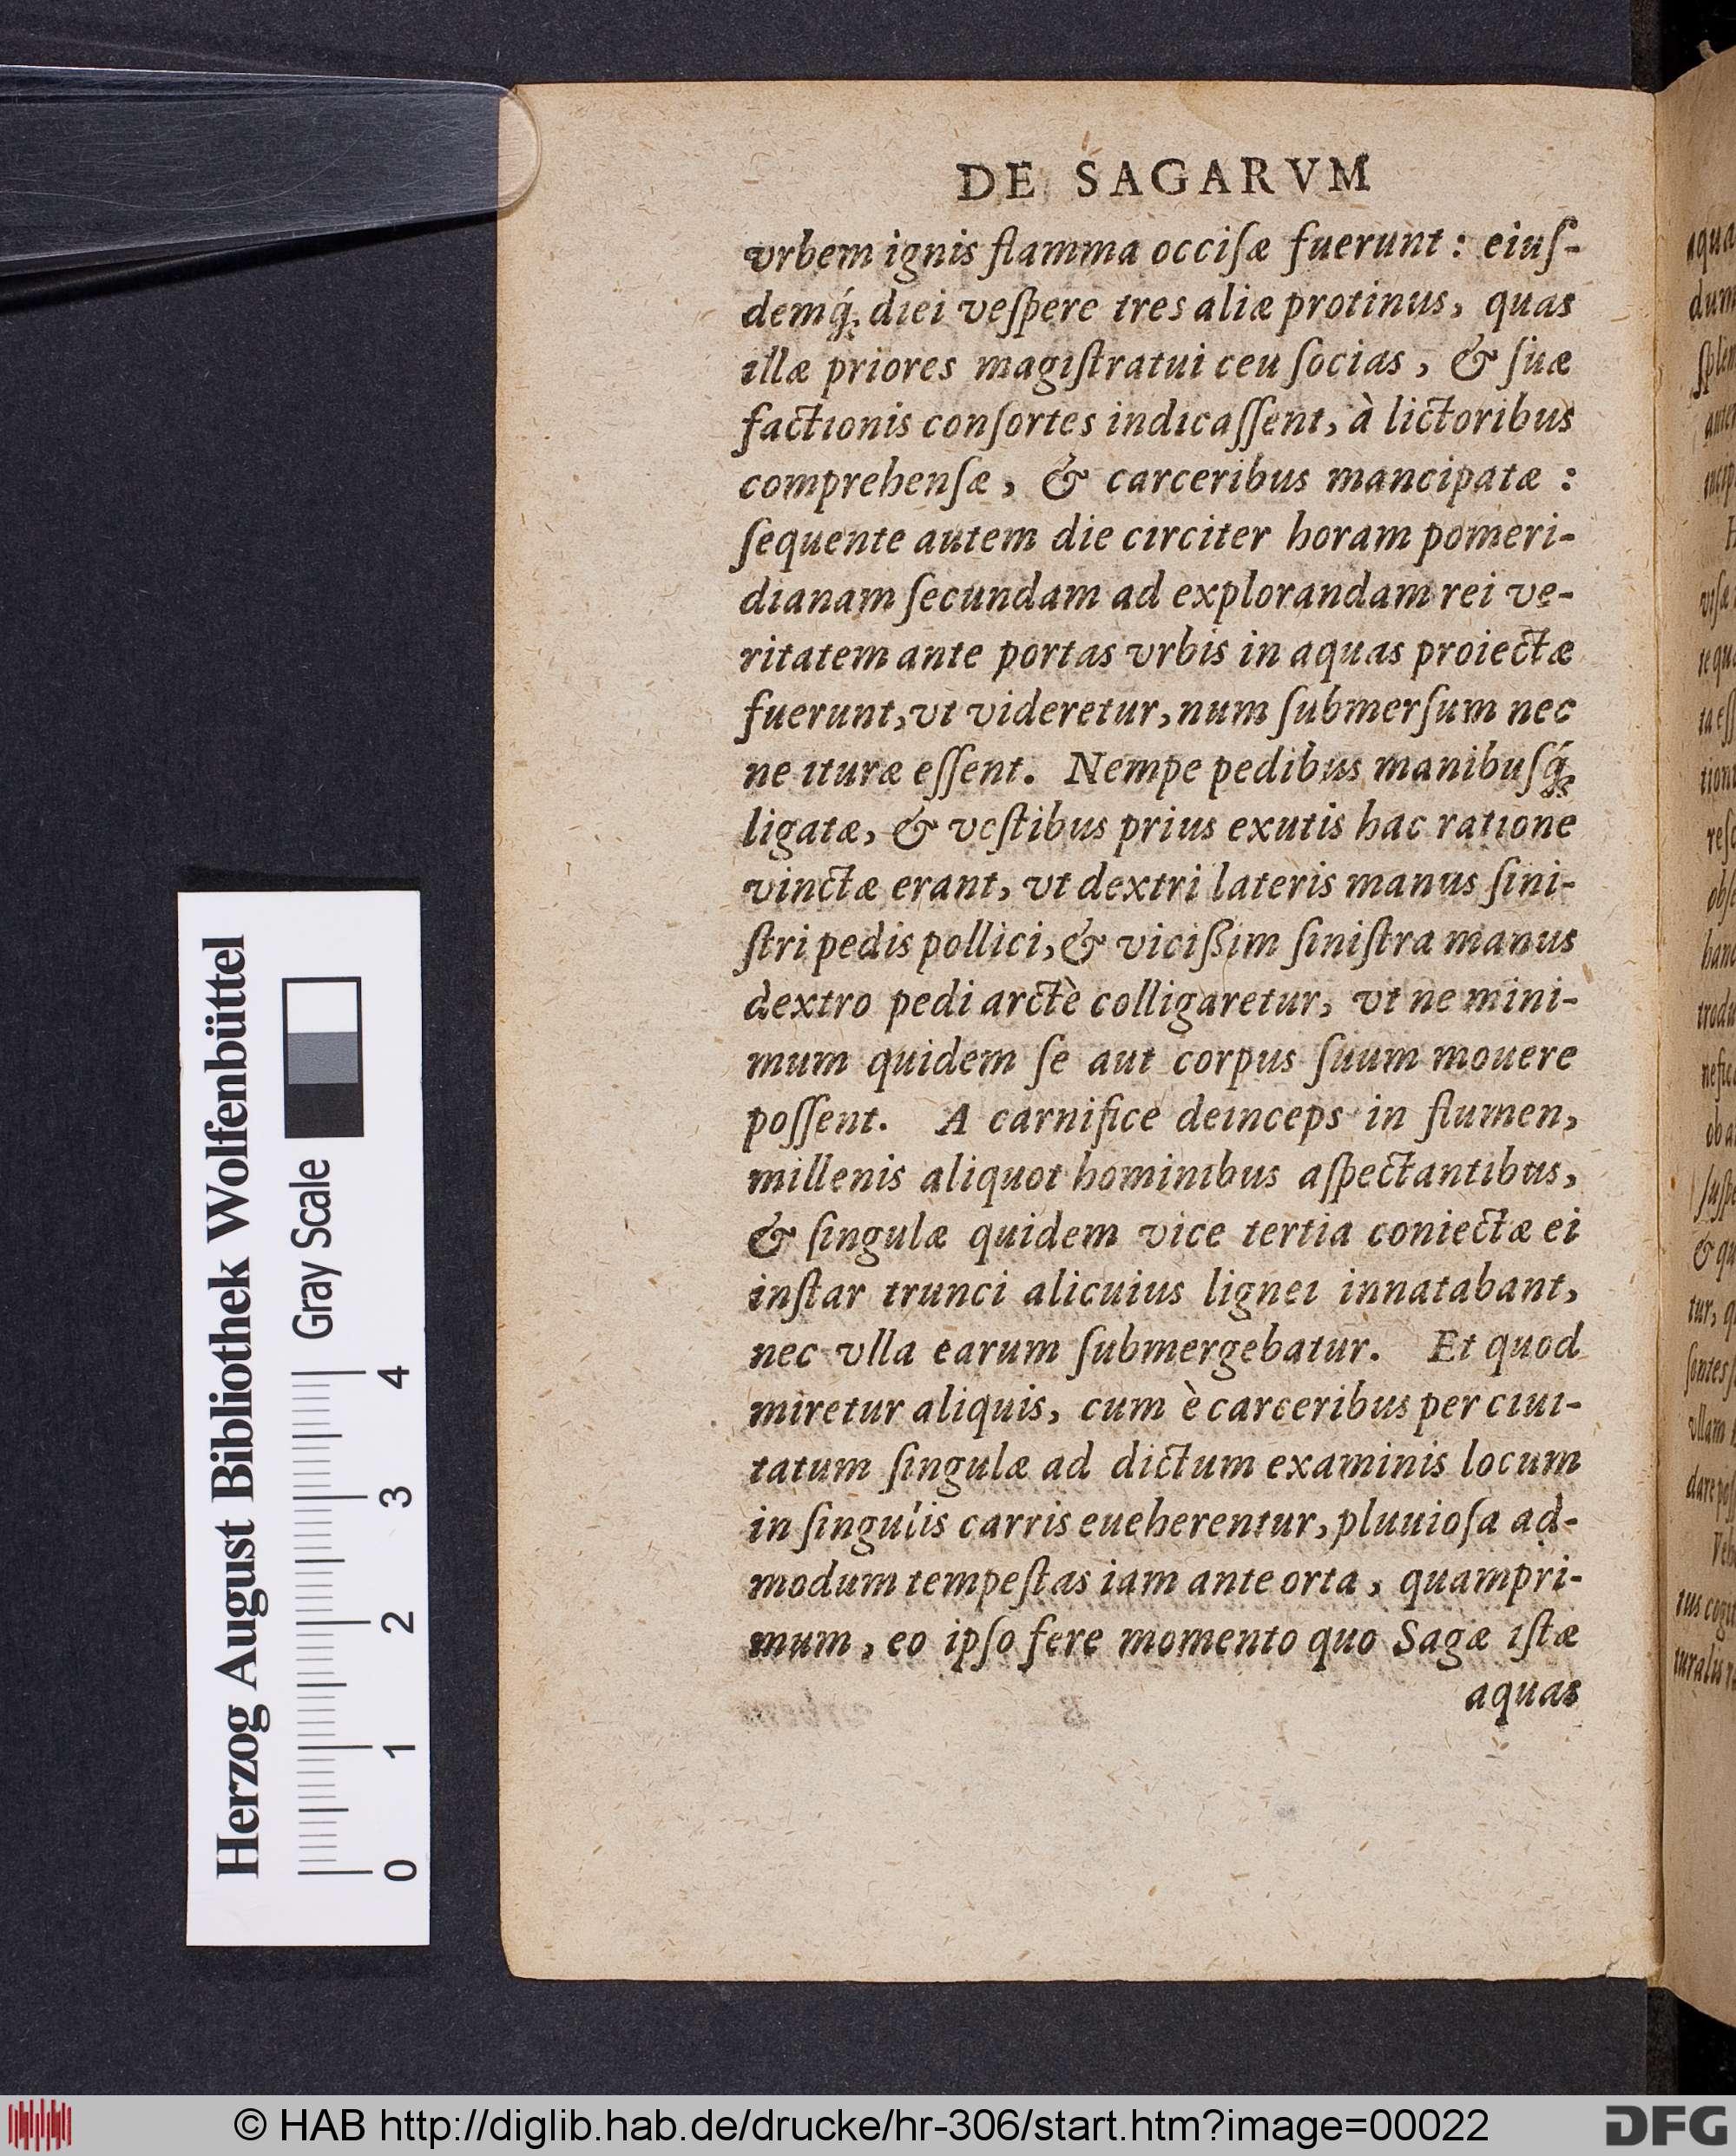 DE SAGARVM
vrbem ignis flamma occiſæ fuerunt: eiuſ-
demq́; diei veſpere tres aliæ protinus, quas
illæ priores magiſtratui ceu ſocias, & ſuæ
factionis conſortes indicaſſent, à lictoribus
comprehenſæ, & carceribus mancipatæ:
ſequente autem die circiter horam pomeri-
dianam ſecundam ad explorandam rei ve-
ritatem ante portas vrbis in aquas proiectæ
fuerunt, vt videretur, num ſubmerſum nec
ne ituræ eſſent. Nempe pedibus manibuſq́;
ligatæ, & veſtibus prius exutis hac ratione
vinctæ erant, vt dextri lateris manus ſini-
ſtri pedis pollici, & viciſſim ſiniſtra manus
dextro pedi arctè colligaretur, vt ne mini-
mum quidem ſe aut corpus ſuum mouere
poſſent. A carnifice deinceps in flumen,
millenis aliquot hominibus aſpectantibus,
& ſingulæ quidem vice tertia coniectæ ei
inſtar trunci alicuius lignei innatabant,
nec vlla earum ſubmergebatur. Et quod
miretur aliquis, cum è carceribus per ciui-
tatum ſingulæ ad dictum examinis locum
in ſingulis carris eueherentur, pluuioſa ad-
modum tempeſtas iam ante orta, quampri-
mum, eo ipſo fere momento quo Sagæ iſtæ
aquas
Herzog August Bibliothek Wolfenbüttel
Gray Scale
0 1 2 3 4
© HAB http://diglib.hab.de/drucke/hr-306/start.htm?image=00022
DFG